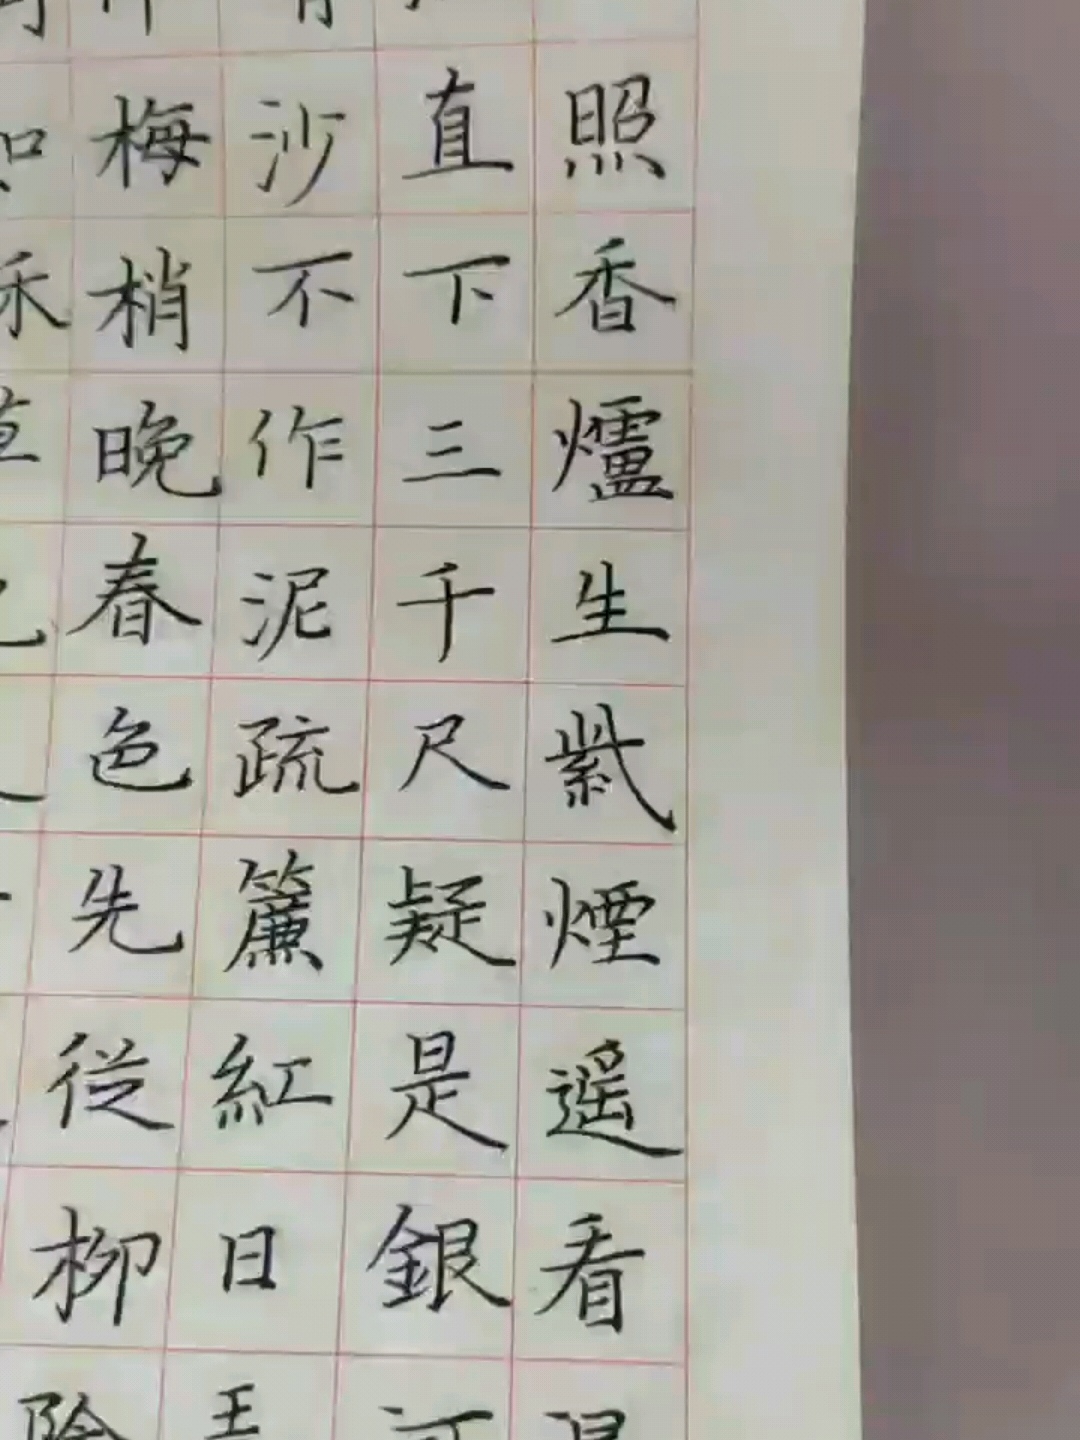 照香爐生紫煙遙看
直下三千尺疑是銀河
沙不作泥疏簾紅日
梅梢晚春色先從柳陰